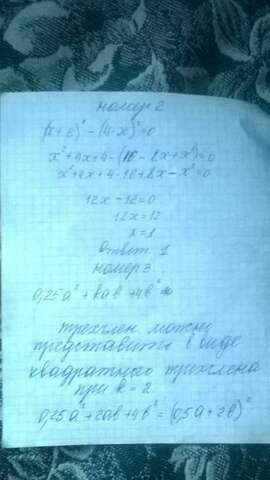 номер 2
(x+2)² - (4-x)² = 0
x² + 4x + 4 - (16 - 8x + x²) = 0
x² + 4x + 4 - 16 + 8x - x² = 0
12x - 12 = 0
12x = 12
x = 1
Ответ. 1
номер 3.
0,25a² + kab + 4b²
трехчлен можно
представить в виде
квадратного трехчлена
при k = 2
0,25a² + 2ab + 4b² = (0,5a + 2b)²